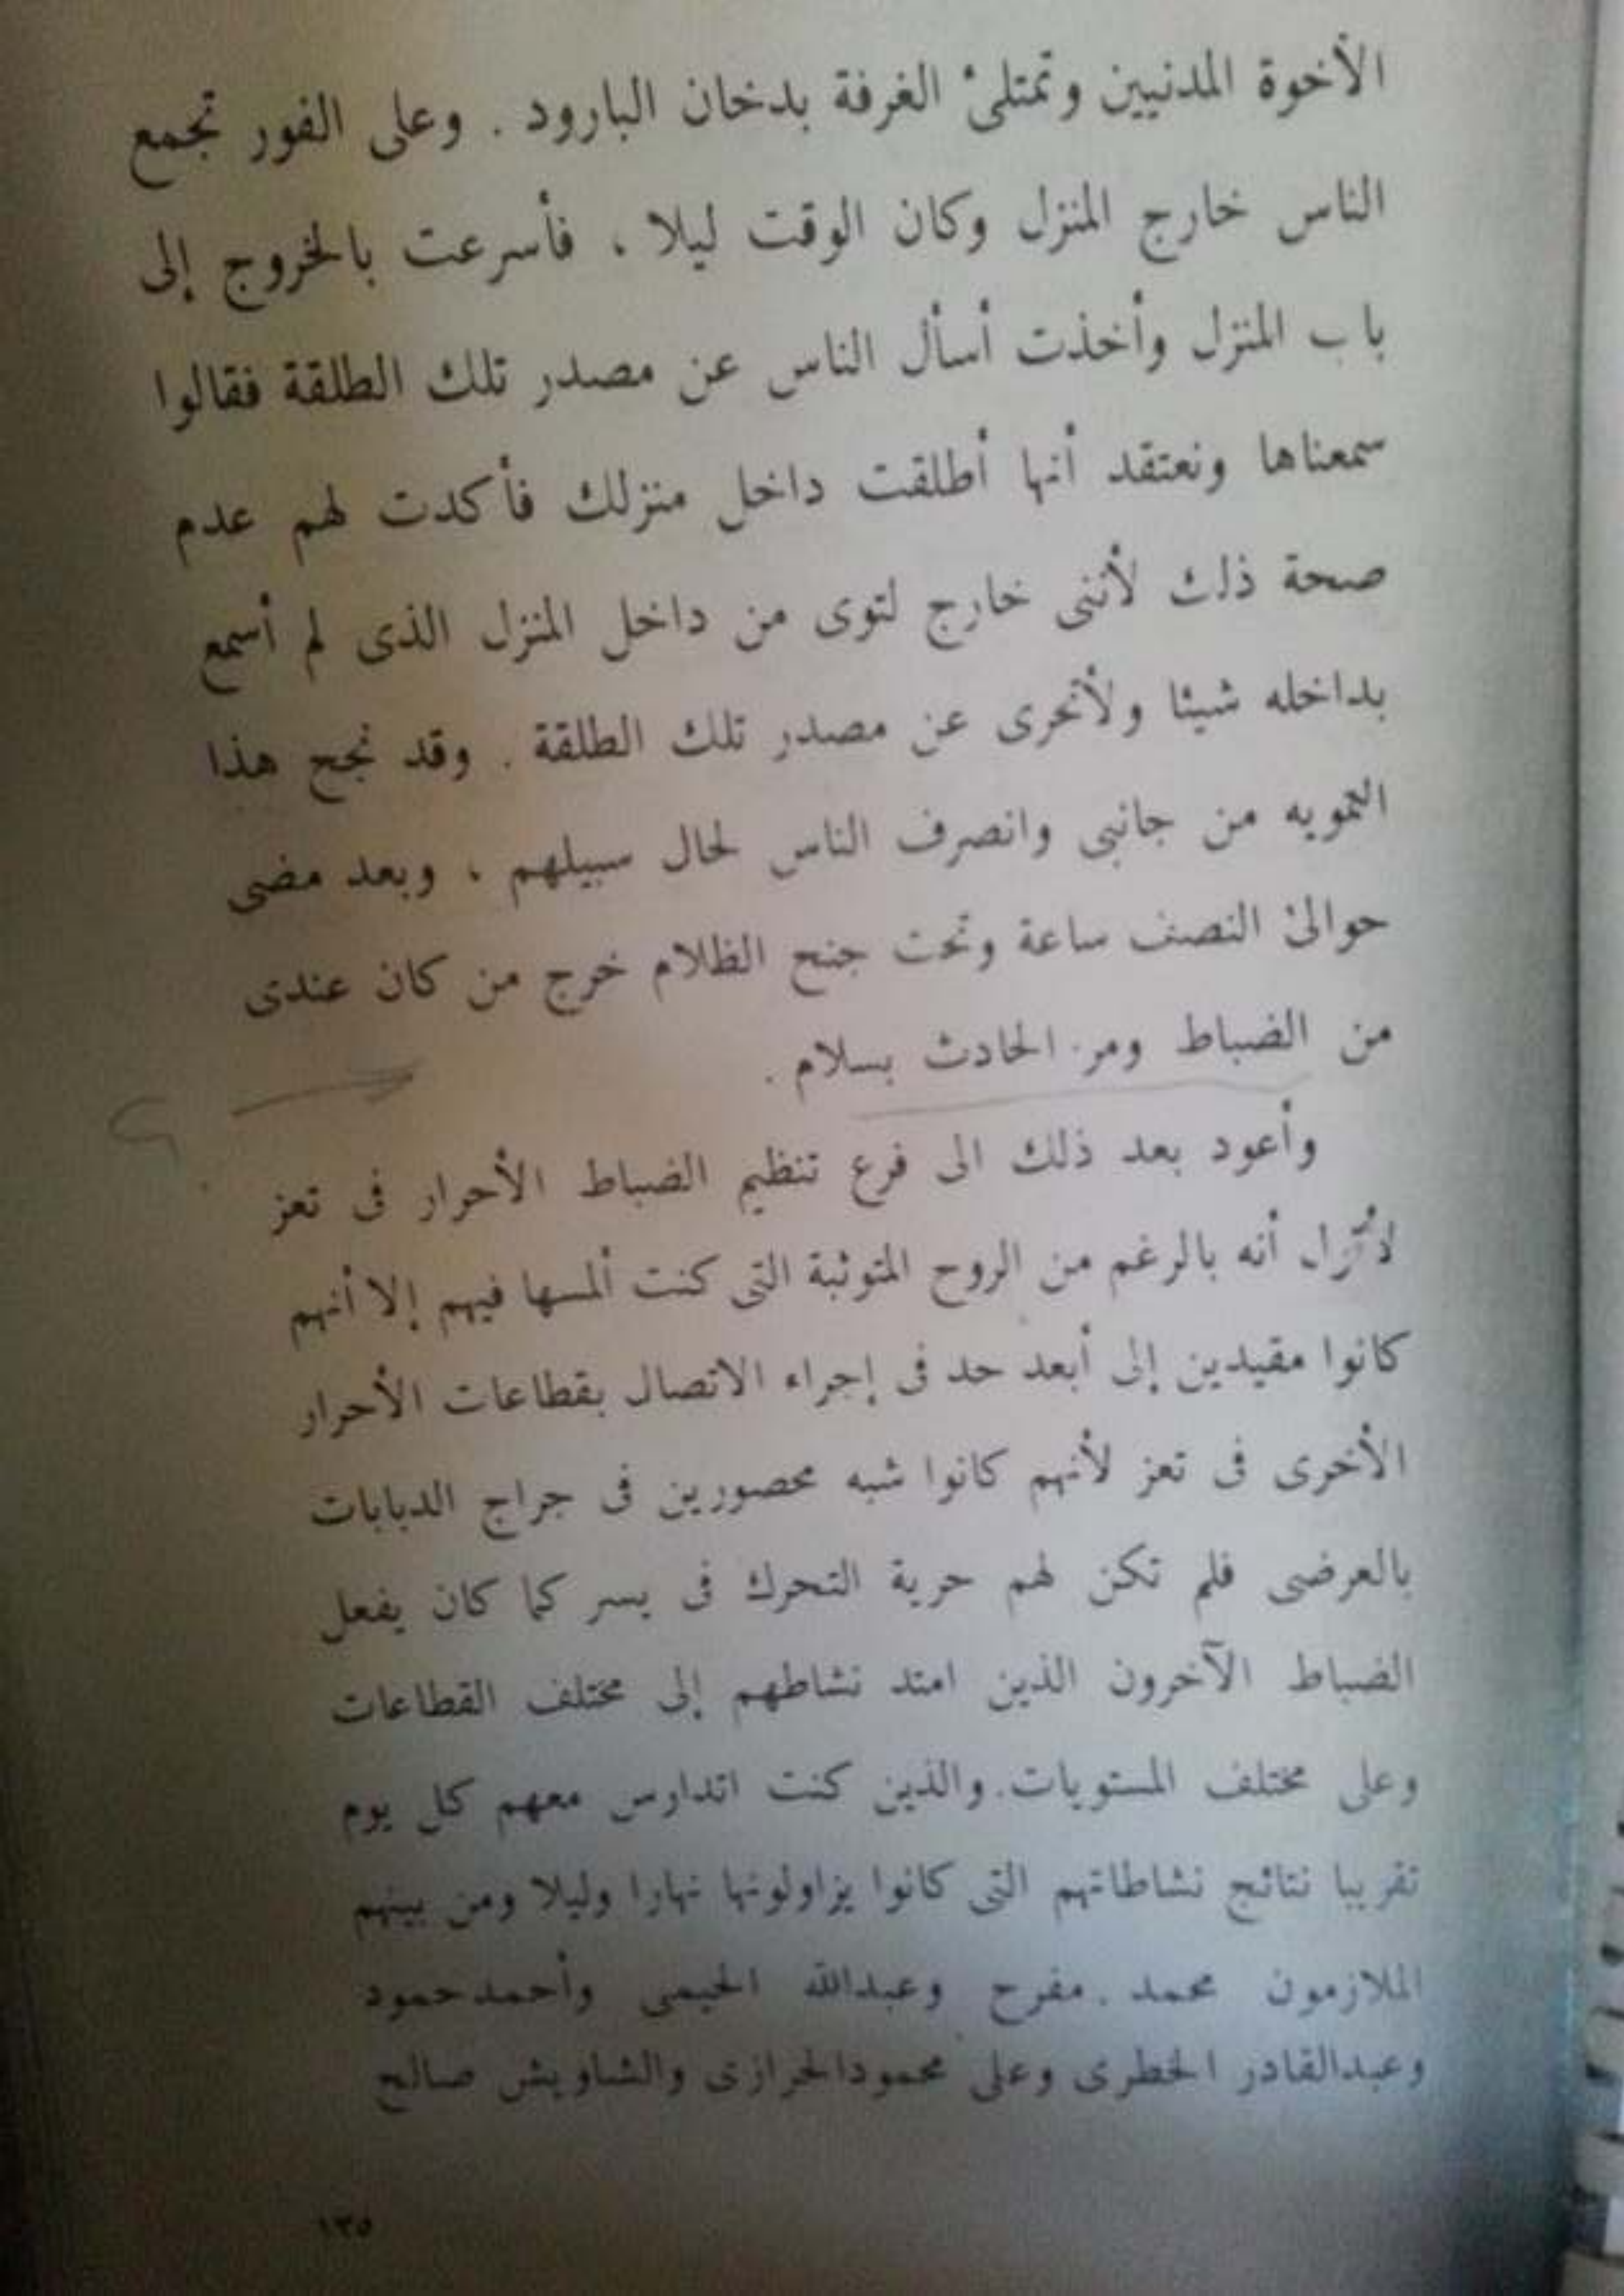 الأخوة المدنيين وتمتلئ الغرفة بدخان البارود . وعلى الفور تجمع
الناس خارج المنزل وكان الوقت ليلا ، فأسرعت بالخروج إلى
باب المنزل وأخذت أسأل الناس عن مصدر تلك الطلقة فقالوا
سمعناها ونعتقد أنها أطلقت داخل منزلك فأكدت لهم عدم
صحة ذلك لأننى خارج لتوى من داخل المنزل الذى لم أسمع
بداخله شيئا ولأتحرى عن مصدر تلك الطلقة . وقد نجح هذا
التمويه من جانبى وانصرف الناس لحال سبيلهم ، وبعد مضى
حوالئ النصف ساعة وتحت جنح الظلام خرج من كان عندى
من الضباط ومر الحادث بسلام .
وأعود بعد ذلك الى فرع تنظيم الضباط الأحرار فى تعز
أنه بالرغم من الروح المتوثبة التى كنت ألمسها فيهم إلا أنهم
كانوا مقيدين إلى أبعد حد فى إجراء الاتصال بقطاعات الأحرار
الأخرى فى تعز لأنهم كانوا شبه محصورين فى جراج الدبابات
بالعرضى فلم تكن لهم حرية التحرك فى يسر كما كان يفعل
الضباط الآخرون الذين امتد نشاطهم إلى مختلف القطاعات
وعلى مختلف المستويات . والذين كنت اتدارس معهم كل يوم
تقريبا نتائج نشاطاتهم التى كانوا يزاولونها نهارا وليلا ومن بينهم
الملازمون محمد . مفرح وعبدالله الحيمى وأحمد حمود
وعبدالقادر الخطرى وعلى محمود الحرازى والشاويش صالح
١٣٥